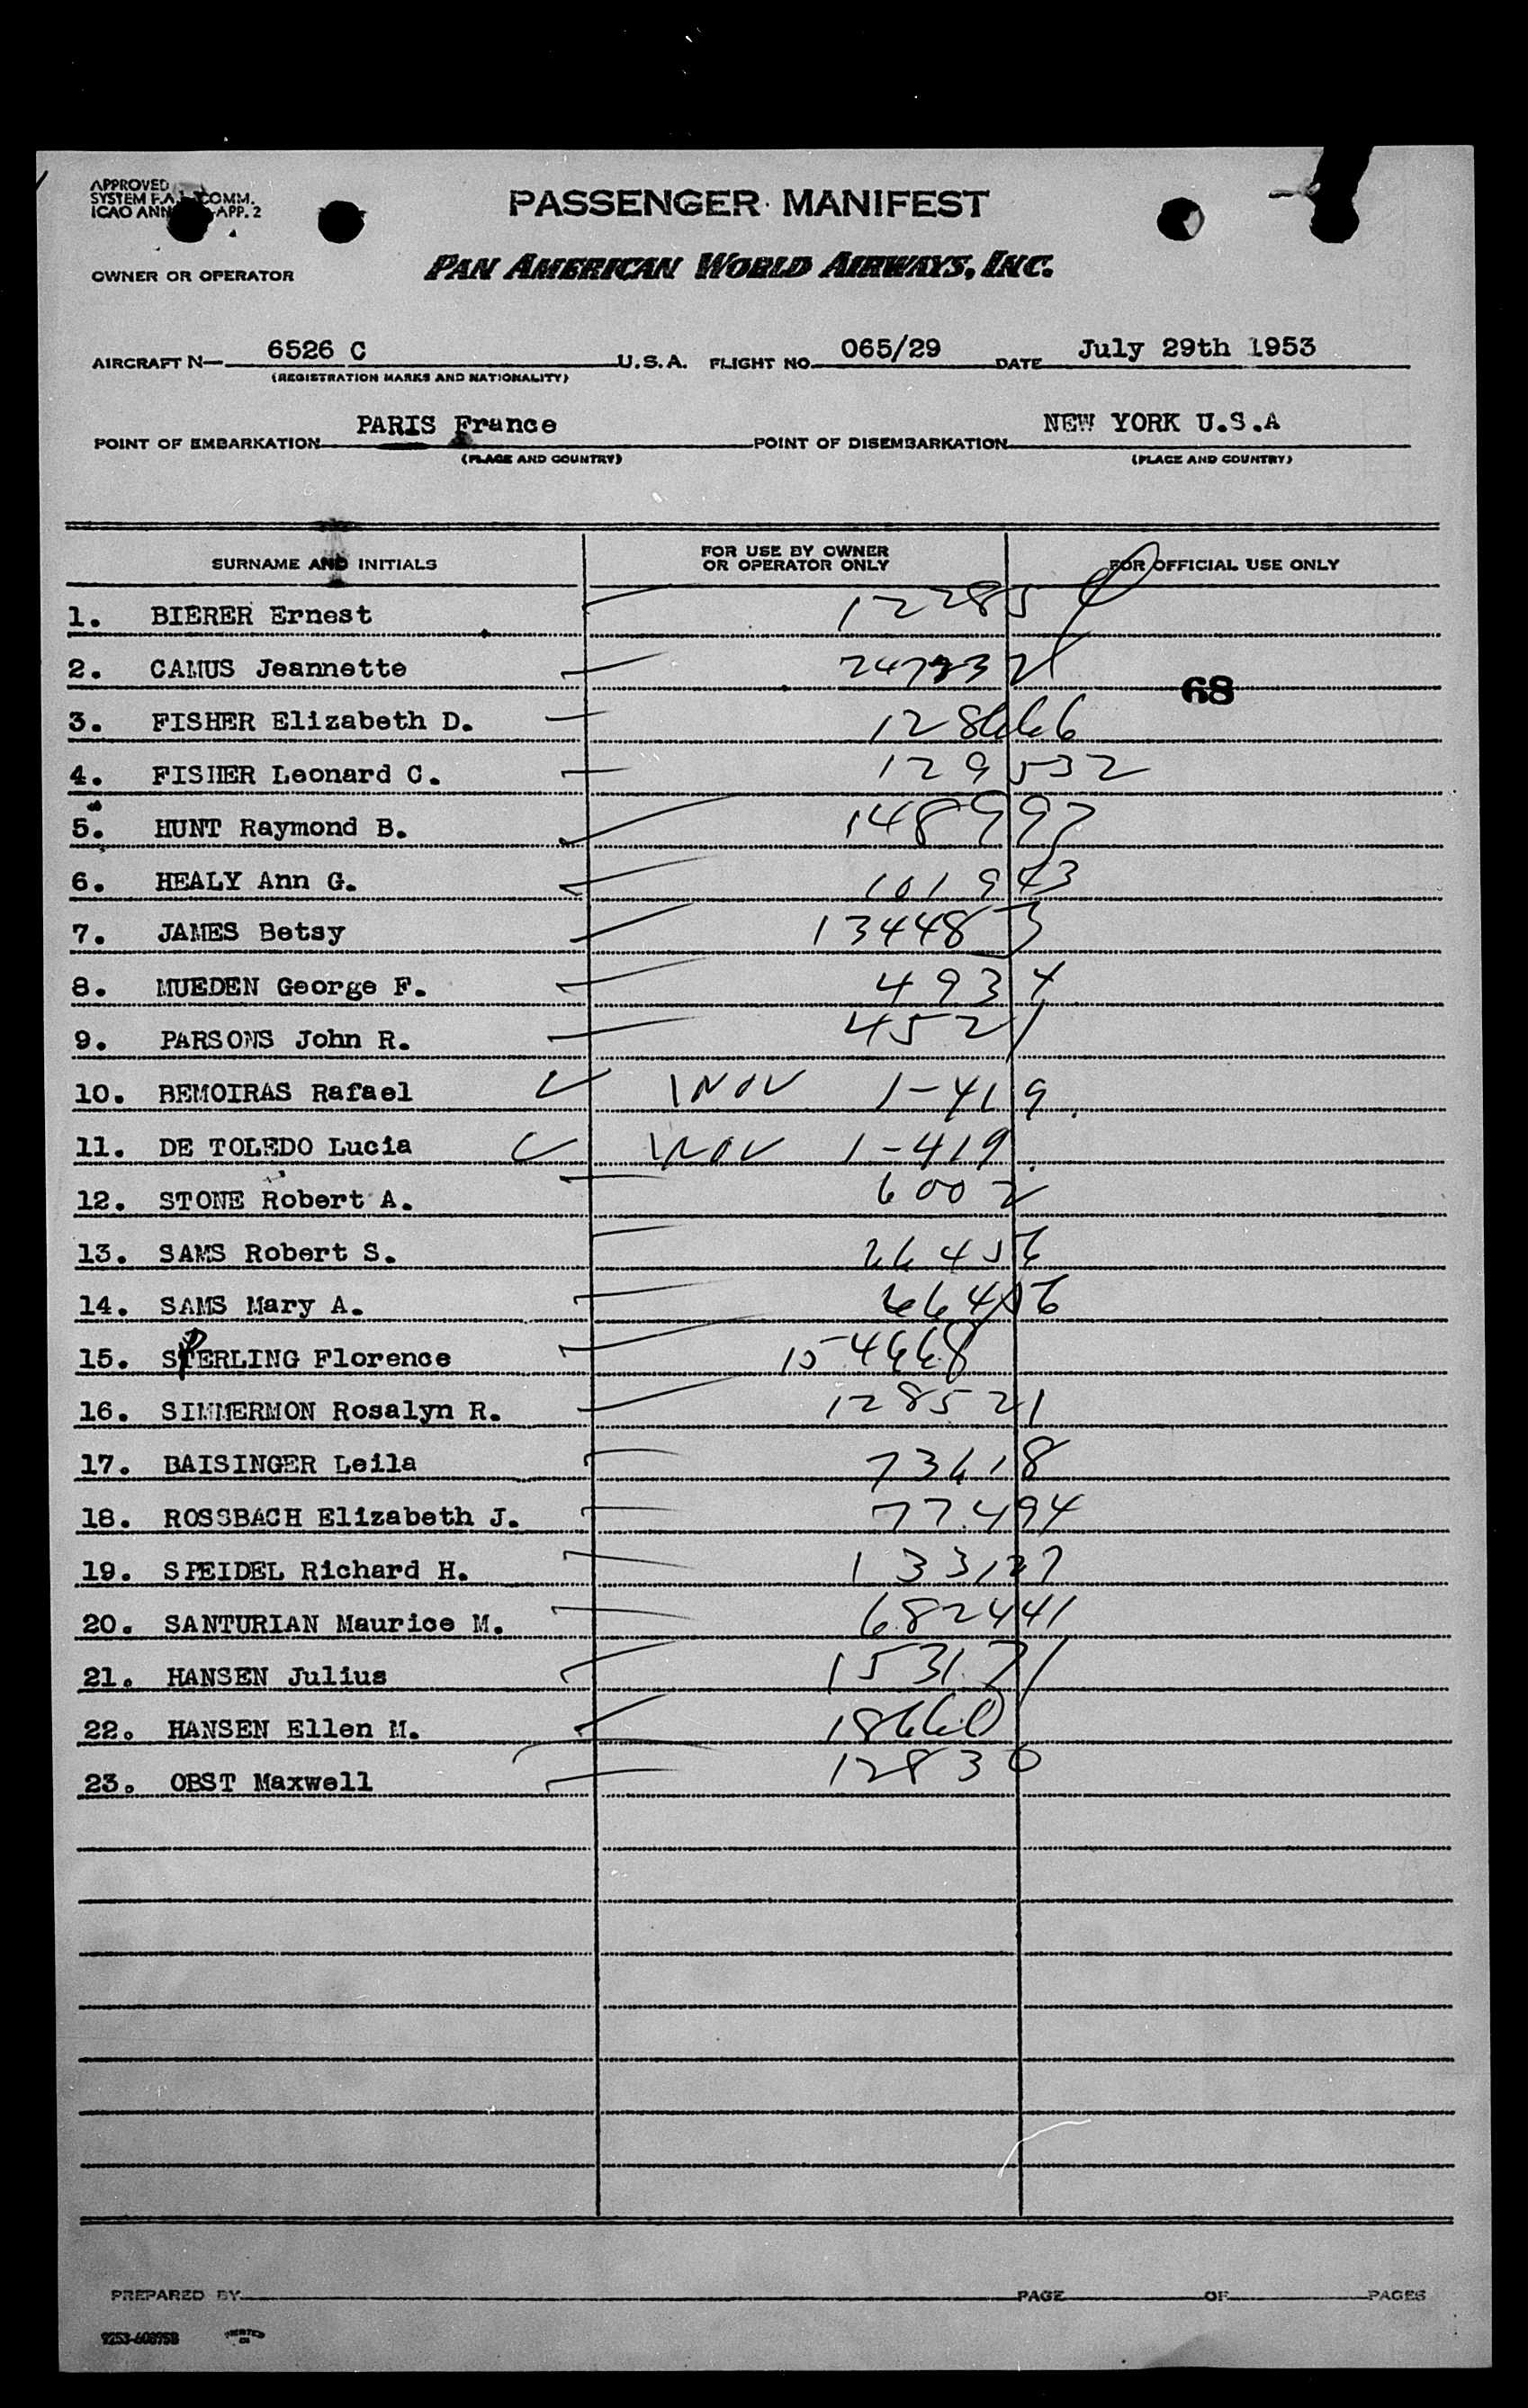 APPROVED
SYSTEM F.A. COMM.
ICAO ANN APP. 2
PASSENGER MANIFEST
OWNER OR OPERATOR PAN AMERICAN WORLD AIRWAYS, INC.
AIRCRAFT N— 6526 C U.S.A. FLIGHT NO. 065/29 DATE July 29th 1953
(REGISTRATION MARKS AND NATIONALITY)
POINT OF EMBARKATION PARIS France POINT OF DISEMBARKATION NEW YORK U.S.A
(PLACE AND COUNTRY) (PLACE AND COUNTRY)
SURNAME AND INITIALS FOR USE BY OWNER OR OPERATOR ONLY FOR OFFICIAL USE ONLY
1. BIERER Ernest 12285
2. CAMUS Jeannette
68
3. FISHER Elizabeth D. 128666
4. FISHER Leonard C. 129532
5. HUNT Raymond B. 148997
6. HEALY Ann G. 101943
7. JAMES Betsy 134483
8. MUEDEN George F. 4934
9. PARSONS John R. 4521
10. BEMOIRAS Rafael 1-419
11. DE TOLEDO Lucia 1-419
12. STONE Robert A. 6002
13. SAMS Robert S. 66456
14. SAMS Mary A. 66456
15. SPERLING Florence 154668
16. SIMMERMON Rosalyn R. 128521
17. BAISINGER Leila 73618
18. ROSSBACH Elizabeth J. 77494
19. SPEIDEL Richard H. 133127
20. SANTURIAN Maurice M. 682441
21. HANSEN Julius 153171
22. HANSEN Ellen M. 18660
23. OBST Maxwell 12830
PREPARED BY PAGE OF PAGES
9253-60895B PRINTED